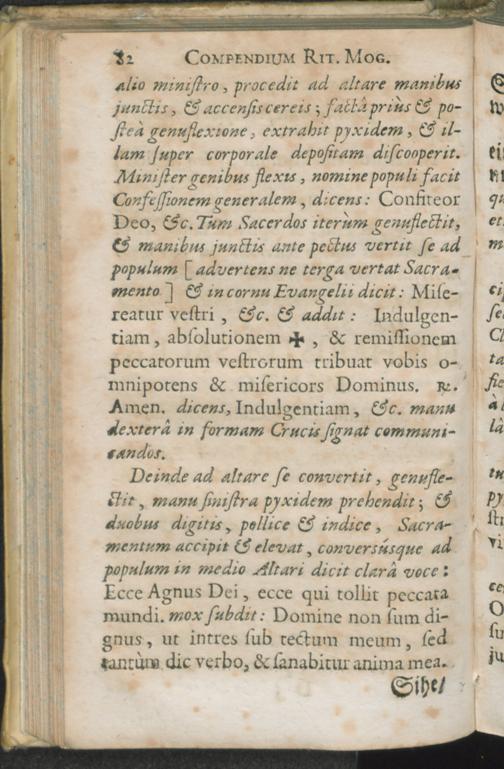 82 COMPENDIUM RIT. MOG.
alio miniſtro, procedit ad altare manibus
junctis, & accenſis cereis; factâ priùs & po-
ſteà genuflexione, extrahit pyxidem, & il-
lam ſuper corporale depoſitam diſcooperit.
Miniſter genibus flexis, nomine populi facit
Confeſſionem generalem, dicens: Confiteor
Deo, &c. Tùm Sacerdos iterùm genuflectit,
& manibus junctis ante pectus vertit ſe ad
populum [advertens ne terga vertat Sacra-
mento] & in cornu Evangelii dicit: Miſe-
reatur veſtri, &c. & addit: Indulgen-
tiam, abſolutionem ✠, & remiſſionem
peccatorum veſtrorum tribuat vobis o-
mnipotens & miſericors Dominus. ℞.
Amen. dicens, Indulgentiam, &c. manu
dexterâ in formam Crucis ſignat communi-
candos.
Deinde ad altare ſe convertit, genufle-
ctit, manu ſiniſtra pyxidem prehendit; &
duobus digitis, pollice & indice, Sacra-
mentum accipit & elevat, converſúsque ad
populum in medio Altari dicit clarâ voce:
Ecce Agnus Dei, ecce qui tollit peccata
mundi. mox ſubdit: Domine non ſum di-
gnus, ut intres ſub tectum meum, ſed
tantùm dic verbo, & ſanabitur anima mea.
Sihe/